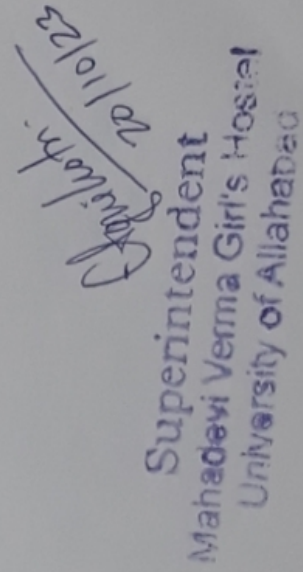 20/10/23
Superintendent
Mahadevi Verma Girl's Hostel
University of Allahabad